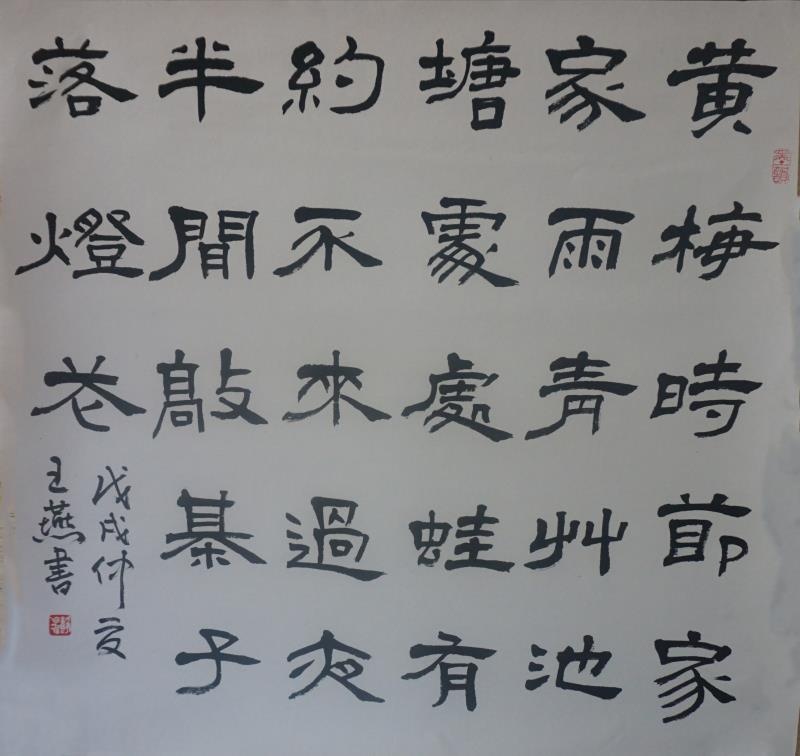 黄梅時節家
家雨青艸池
塘處處蛙有
約不來過夜
半間敲棊子
落燈花
戊戌仲夏
王燕書